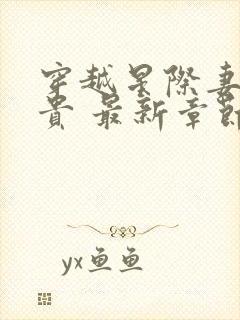 穿越星際妻
貴 最新章節
yx鱼鱼